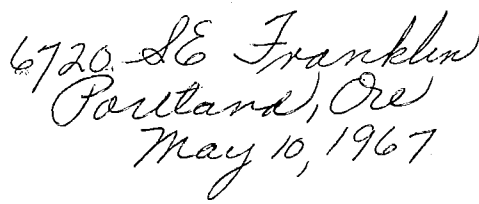 6720 SE Franklin
Portland, Ore
May 10, 1967